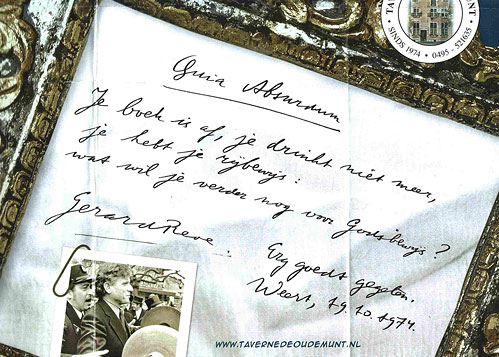 TAVERNE DE OUDE MUNT
SINDS 1974 • 0495 - 521635
Quia Absurdum
Je boek is af, je drinkt niet meer,
je hebt je rijbewijs:
wat wil je verder nog voor Godsbewijs?
Gerard Reve.
Erg goed gegeten.
Weert, 19.10.1974.
WWW.TAVERNEDEOUDEMUNT.NL